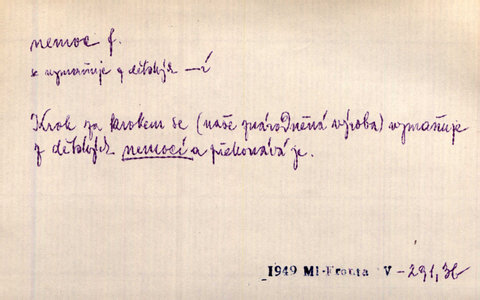 nemoc f.
se vymaňuje z dětských —í
Krok za krokem se (naše znárodněná výroba) vymaňuje
z dětských nemocí a překonává je.
1949 Ml-Fronta V - 291, 3b